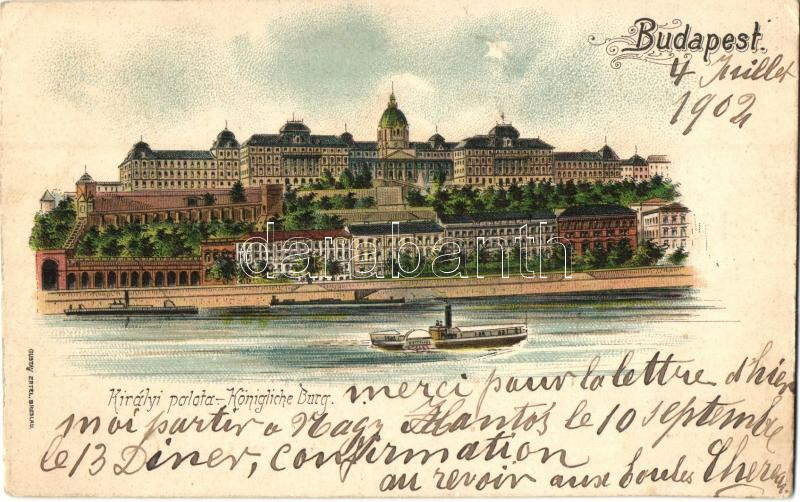 Budapest.
4 Juillet
1902
darabanth
GUSTAV ERTEL, BRESLAU.
Királyi palota - Königliche Burg.
merci pour la lettre d'hier
moi partir a Nagy le 10 septembre
le 13 Diner, confirmation
au revoir aux